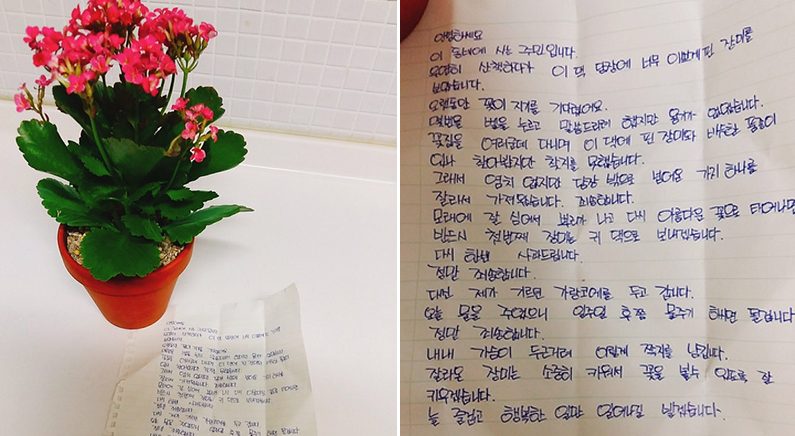 안녕하세요
이 동네에 사는 주민입니다.
우연히 산책하다가 이 댁 담장에 너무 이쁘게 핀 장미를
보았습니다.
오랫동안 꽃이 지기를 기다렸어요.
몇번을 벨을 누르고 말씀드리려 했지만 용기가 없었습니다.
꽃집을 여러군데 다니며 이 댁에 핀 장미와 비슷한 품종이
있나 찾아봤지만 찾지를 못했습니다.
그래서 염치 없지만 담장 밖으로 넘어온 가지 하나를
잘라서 가져왔습니다. 죄송합니다.
모래에 잘 심어서 뿌리가 나고 다시 아름다운 꽃으로 태어나면
반드시 첫번째 장미는 귀 댁으로 보내겠습니다.
다시 한번 사과드립니다.
정말 죄송합니다.
대신 제가 기르던 카랑코에를 두고 갑니다.
오늘 물을 주었으니 일주일 후쯤 물주기 해면 될겁니다
정말 죄송합니다.
내내 가슴이 두근거려 이렇게 쪽지를 남긴니다.
잘라온 장미는 소중히 키워서 꽃을 볼수 있도록 잘
키우겠습니다.
늘 즐겁고 행복한 일만 일어나길 바랍니다.